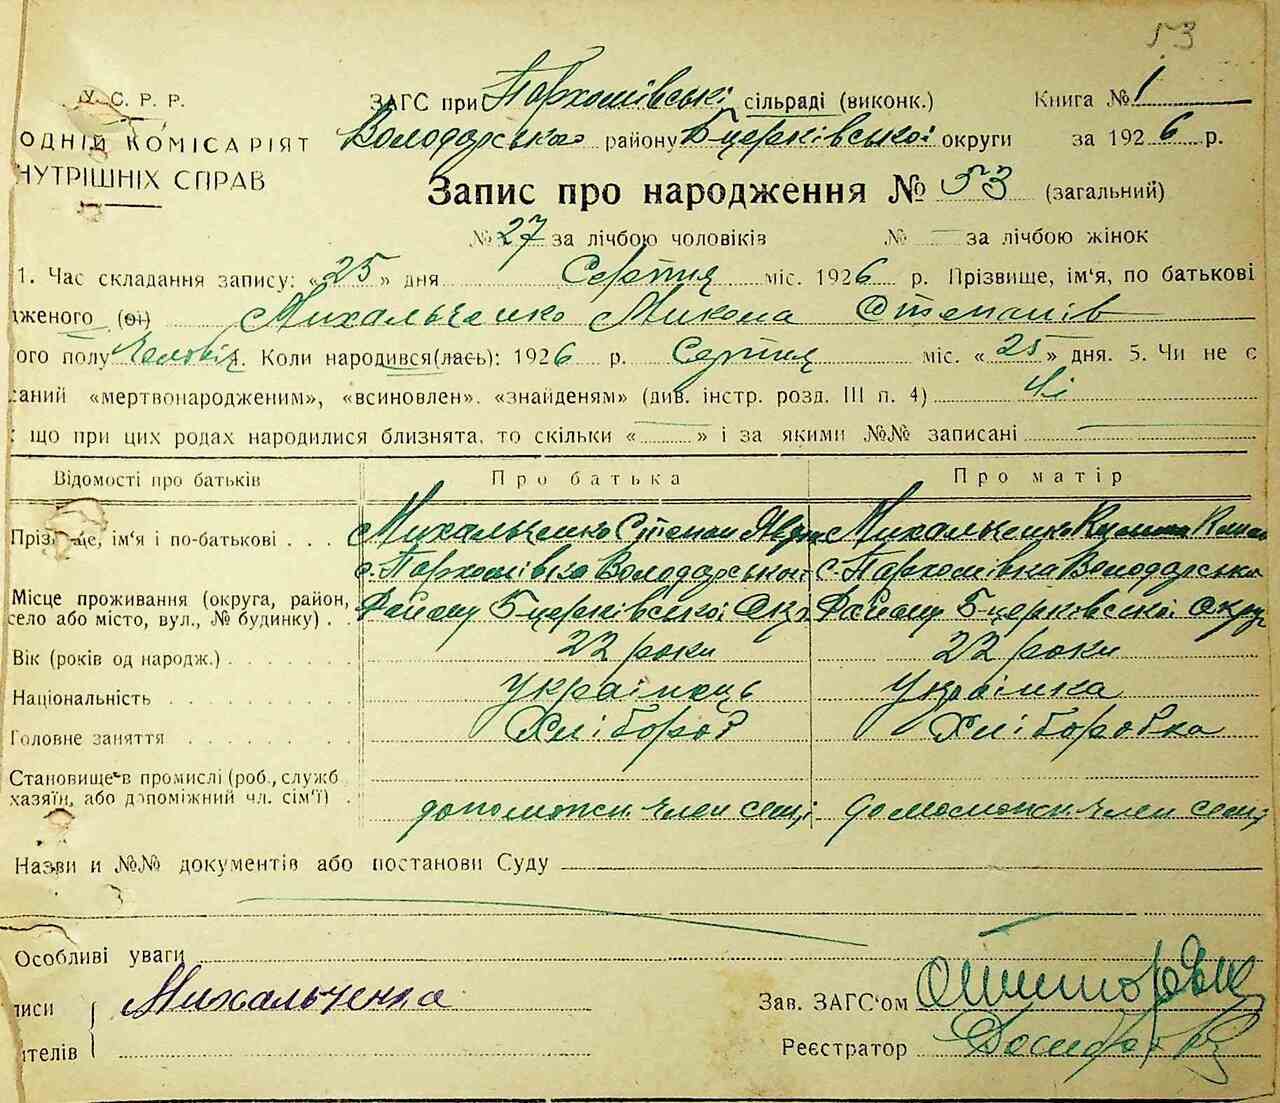 53
У. С. Р. Р.
ОДНІЙ КОМІСАРІЯТ
НУТРІШНІХ СПРАВ
ЗАГС при Пархомівські сільраді (виконк.)
Книга № 1
Володарського району Б-церківської округи
за 1926 р.
Запис про народження № 53 (загальний)
№ 27 за лічбою чоловіків № — за лічбою жінок
1. Час складання запису: «25» дня Серпня міс. 1926 р. Прізвище, ім'я, по батькові
дженого (ої) Михальченко Микола Степанів
ого полу Чоловіч. Коли народився(лась): 1926 р. Серпня міс. «25» дня. 5. Чи не є
саний «мертвонародженим», «всиновлен». «знайденям» (див. інстр. розд. III п. 4) Ні
: що при цих родах народилися близнята, то скільки « » і за якими №№ записані
Відомості про батьків Про батька Про матір
Прізвище, ім'я і по-батькові Михальченко Степан Михальченко
с. Пархомівка Володарської с. Пархомівка Володарська
Місце проживання (округа, район,
село або місто, вул., № будинку) Району Б-церківської Окр Району Б-церковської округ
Вік (років од народж.) 22 роки 22 роки
Національність Українець Українка
Головне заняття Хлібороб Хліборобка
Становище в промислі (роб., служб
хазяїн, або допоміжний чл. сім'ї) допоможн. член семі домоможн. член семі
Назви и №№ документів або постанови Суду
Особливі уваги
писи Михальченко
ителів
Зав. ЗАГС'ом
Реєстратор